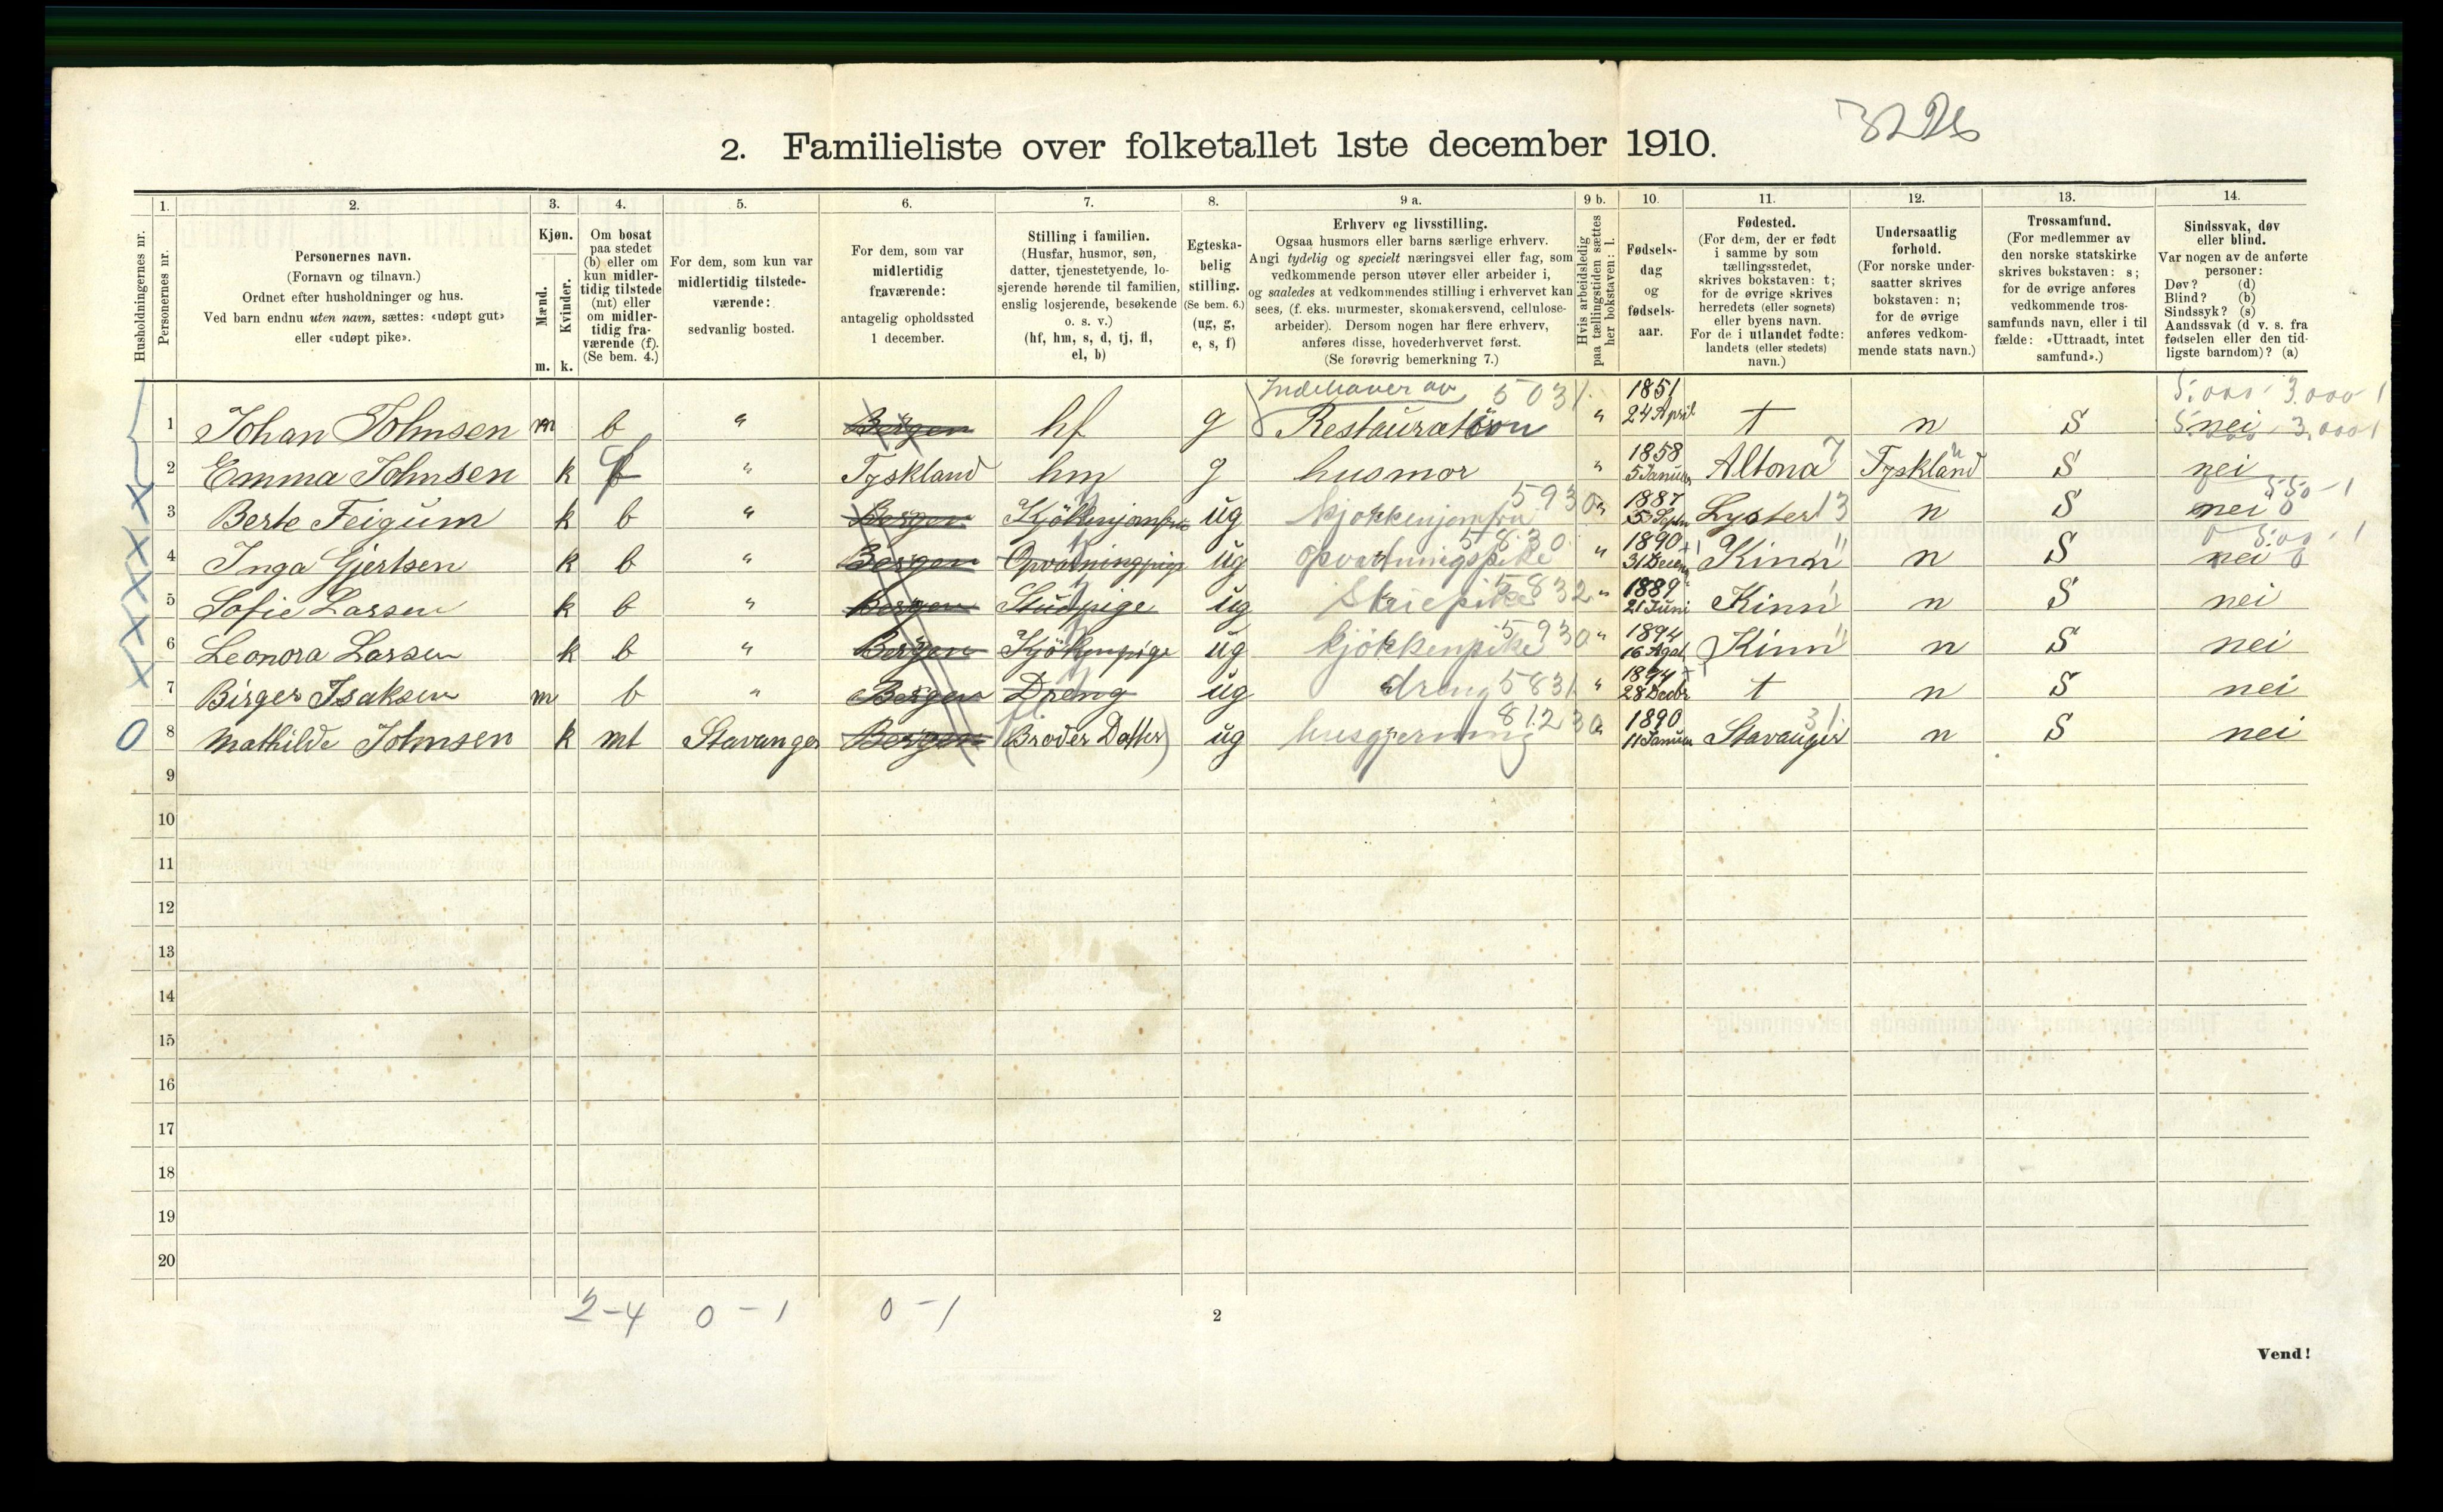 3226
2. Familieliste over folketallet 1ste december 1910.
Husholdningernes nr.
1. Personernes nr.
2. Personernes navn.
(Fornavn og tilnavn.)
Ordnet efter husholdninger og hus.
Ved barn endnu uten navn, sættes: «udøpt gut»
eller «udøpt pike».
3. Kjøn.
Mænd. Kvinder.
m. k.
4. Om bosat
paa stedet
(b) eller om
kun midler-
tidig tilstede
(mt) eller
om midler-
tidig fra-
værende (f).
(Se bem. 4.)
5. For dem, som kun var
midlertidig tilstede-
værende:
sedvanlig bosted.
6. For dem, som var
midlertidig
fraværende:
antagelig opholdssted
1 december.
7. Stilling i familien.
(Husfar, husmor, søn,
datter, tjenestetyende, lo-
sjerende hørende til familien,
enslig losjerende, besøkende
o. s. v.)
(hf, hm, s, d, tj, fl,
el, b)
8. Egteska-
belig
stilling.
(Se bem. 6.)
(ug, g,
e, s, f)
9 a. Erhverv og livsstilling.
Ogsaa husmors eller barns særlige erhverv.
Angi tydelig og specielt næringsvei eller fag, som
vedkommende person utøver eller arbeider i,
og saaledes at vedkommendes stilling i erhvervet kan
sees, (f. eks. murmester, skomakersvend, cellulose-
arbeider). Dersom nogen har flere erhverv,
anføres disse, hovederhvervet først.
(Se forøvrig bemerkning 7.)
9 b. Hvis arbeidsledig
paa tællingstiden sættes
her bokstaven: l.
10. Fødsels-
dag
og
fødsels-
aar.
11. Fødested.
(For dem, der er født
i samme by som
tællingsstedet,
skrives bokstaven: t;
for de øvrige skrives
herredets (eller sognets)
eller byens navn.
For de i utlandet fødte:
landets (eller stedets)
navn.)
12. Undersaatlig
forhold.
(For norske under-
saatter skrives
bokstaven: n;
for de øvrige
anføres vedkom-
mende stats navn.)
13. Trossamfund.
(For medlemmer av
den norske statskirke
skrives bokstaven: s;
for de øvrige anføres
vedkommende tros-
samfunds navn, eller i til
fælde: «Uttraadt, intet
samfund».)
14. Sindssvak, døv
eller blind.
Var nogen av de anførte
personer:
Døv? (d)
Blind? (b)
Sindssyk? (s)
Aandssvak (d v. s. fra
fødselen eller den tid-
ligste barndom)? (a)
Indehaver av 5031 1851 5.000 3.000 1
1 Johan Johnsen m b " Bergen hf g Restauration " 24 April t n S nei 3.000 1
2 Emma Johnsen k f " Tyskland hm g husmor " 1858 5 Januar Altona 7 Tyskland S nei
3 Berte Feigum k b " Bergen Kjökkenjomfru ug kjøkkenjomfru 5930 " 1887 Septr Lyster 13 n S nei 550-1
4 Inga Gjertsen k b " Bergen Opvartningpige ug opvartningspike 5830 " 1890 31 Decem Kinn n S nei 500-1
5 Sofie Larsen k b " Bergen Studpige ug 5832 " 1889 21 Juni Kinn n S nei
6 Leonora Larsen k b " Bergen Kjökkenpige ug kjökkenpike 5930 " 1894 16 Agst Kinn n S nei
7 Birger Isaksen m b " Bergen Dreng ug dreng 5831 " 1894 28 Decbr t n S nei
8 Mathilde Johnsen k mt Stavanger Bergen (Broder Datter) ug husgjerning 812 30 1890 11 Januar Stavanger 31 n S nei
9
10
11
12
13
14
15
16
17
18
19
20
2-4 0-1 0-1
2
Vend!